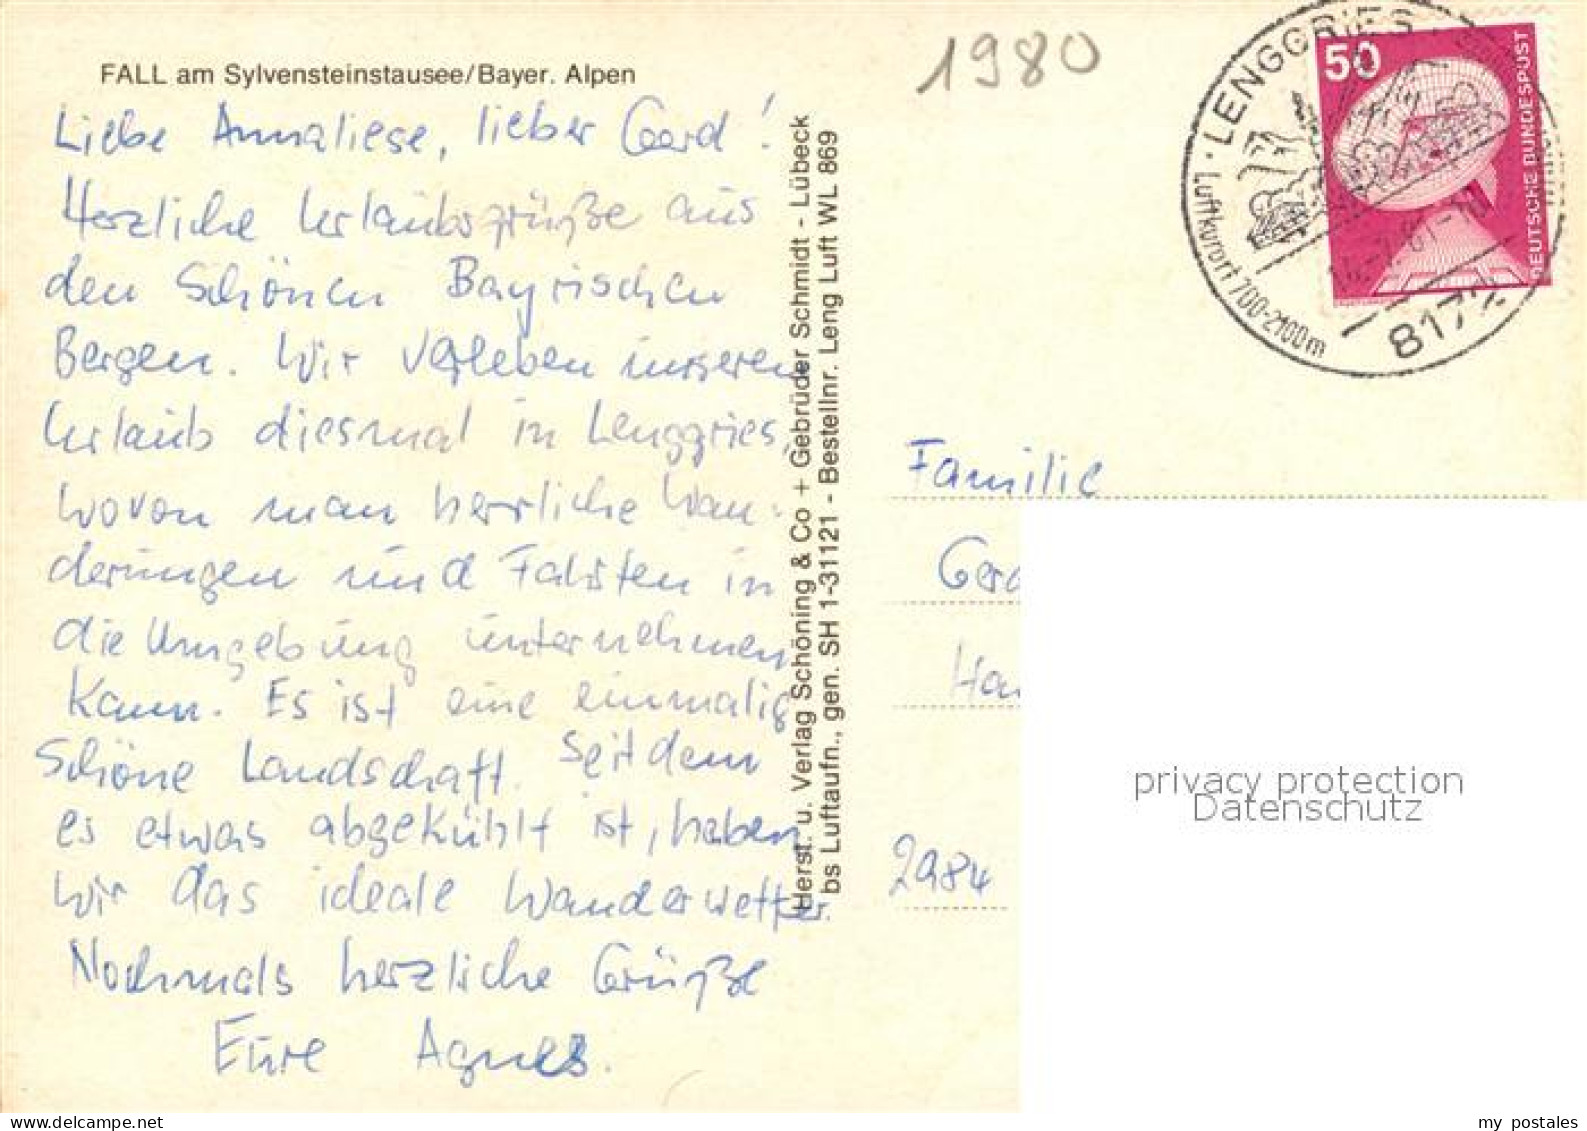 FALL am Sylvensteinstausee/Bayer. Alpen
1980
Liebe Annaliese, lieber Gerd!
Herzliche Urlaubsgrüße aus
den Schönen Bayrischen
Bergen. Wir verleben unseren
Urlaub diesmal in Lenggries,
wovon man herrliche Wan-
derungen und Fahrten in
die Umgebung unternehmen
kann. Es ist eine einmalig
schöne Landschaft. Seitdem
es etwas abgekühlt ist, haben
wir das ideale Wanderwetter.
Nochmals herzliche Grüße
Eure Agnes.
Herst. u. Verlag Schöning & Co + Gebrüder Schmidt - Lübeck
bs Luftaufn., gen. SH 1-31121 - Bestellnr. Leng Luft WL 869
LENGGRIES
Luftkurort 700-2100m
8172
50
DEUTSCHE BUNDESPOST
Familie
Gerd
Han
2984
privacy protection
Datenschutz
delcampe.net
my postales